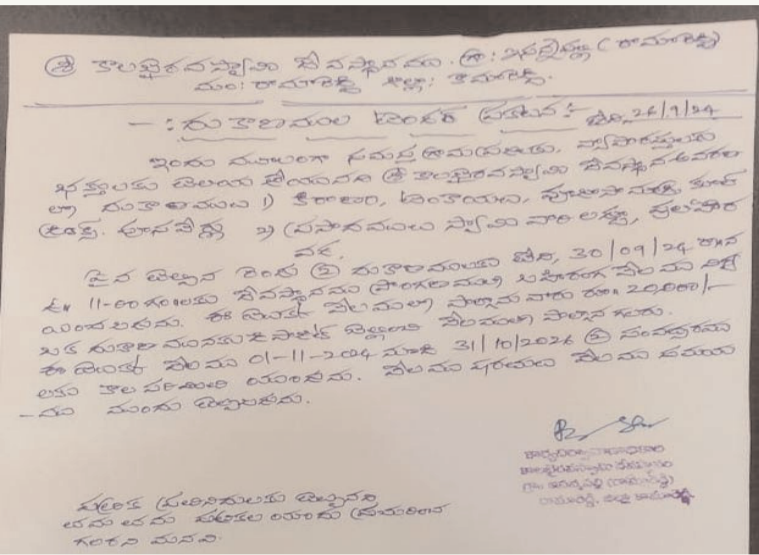 శ్రీ కాలభైరవస్వామి దేవస్థానము. గ్రా: ఇసన్నపల్లి (రామారెడ్డి)
మం: రామారెడ్డి జిల్లా: కామారెడ్డి.
-: దుకాణముల టెండర్ ప్రకటన :- తేది, 26/9/24
ఇందు మూలంగా సమస్త గ్రామ ప్రజలకు, వ్యాపారస్తులకు
భక్తులకు తెలియ చేయునది శ్రీ కాలభైరవస్వామి దేవస్థాన ఆవరణ
లో దుకాణములు 1) కిరాణం, టెంకాయలు, పూజాసామాగ్రి, కూల్
డ్రింక్స్. పూసవేర్లు 2) ప్రసాదములు స్వామి వారి లడ్డూ, పులిహోర
వడ.
పైన తెల్పిన రెండు (2) దుకాణములకు తేది, 30/09/24 రోజున
ఉ॥ 11-00 గం॥లకు దేవస్థానము ప్రాంగణములో బహిరంగ వేలము నిర్వ
యించబడును. ఈ టెండర్ వేలములో పాల్గొను వారు రూ॥ 20,000/-
ఒక దుకాణమునకు డిపాజిట్ చెల్లించి వేలములో పాల్గొనగలరు.
ఈ టెండర్ వేలము 01-11-2024 నుండి 31/10/2026 (2) సంవత్సరము
లకు కాల పరిమితి యుండును. వేలము షరతులు వేలము సమయ
-ము ముందు తెల్పబడును.
కార్యనిర్వహణాధికారి
కాలభైరవస్వామి దేవాలయం
గ్రా: ఇసన్నపల్లి (రామారెడ్డి)
రామారెడ్డి, జిల్లా కామారెడ్డి
పత్రిక ప్రతినిధులకు తెల్పునది
తమ తమ పత్రికల యందు ప్రచురించ
గలరని మనవి.